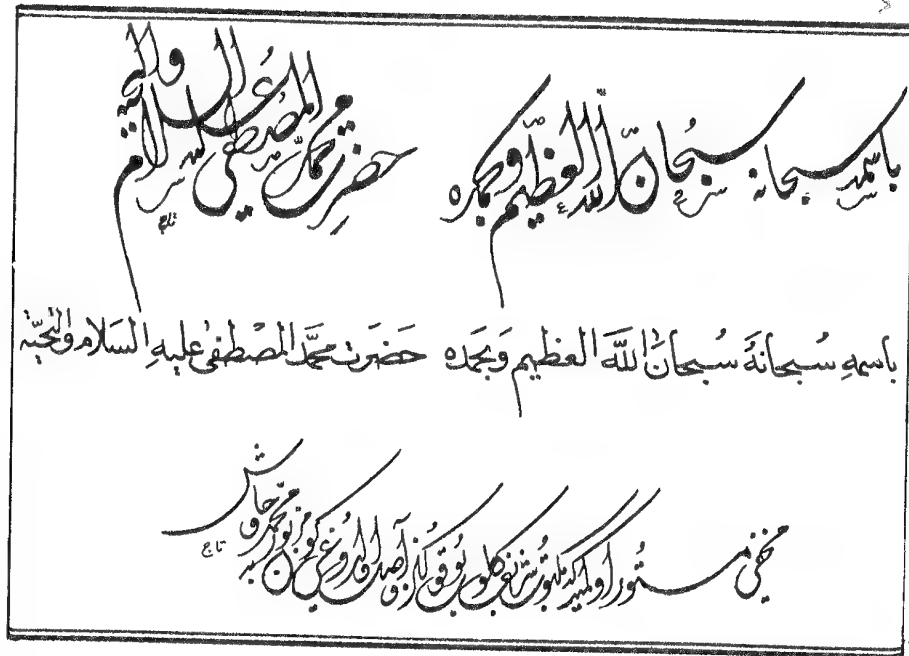 باسمه سبحانه سبحان الله العظيم وبحمده حضرت محمد المصطفى عليه السلام والتحية
باسمهِ سُبحانهُ سُبحانَ اللهَ العظيم وَبحمده حَضرَت محمَّد المصْطفىٰ عليهِ السَلام والتحيّة
مخفی مستور اولمیه که مکتوب کلوب بوقولکزه واصل اولدوغی کون مزبور محمد چاوش